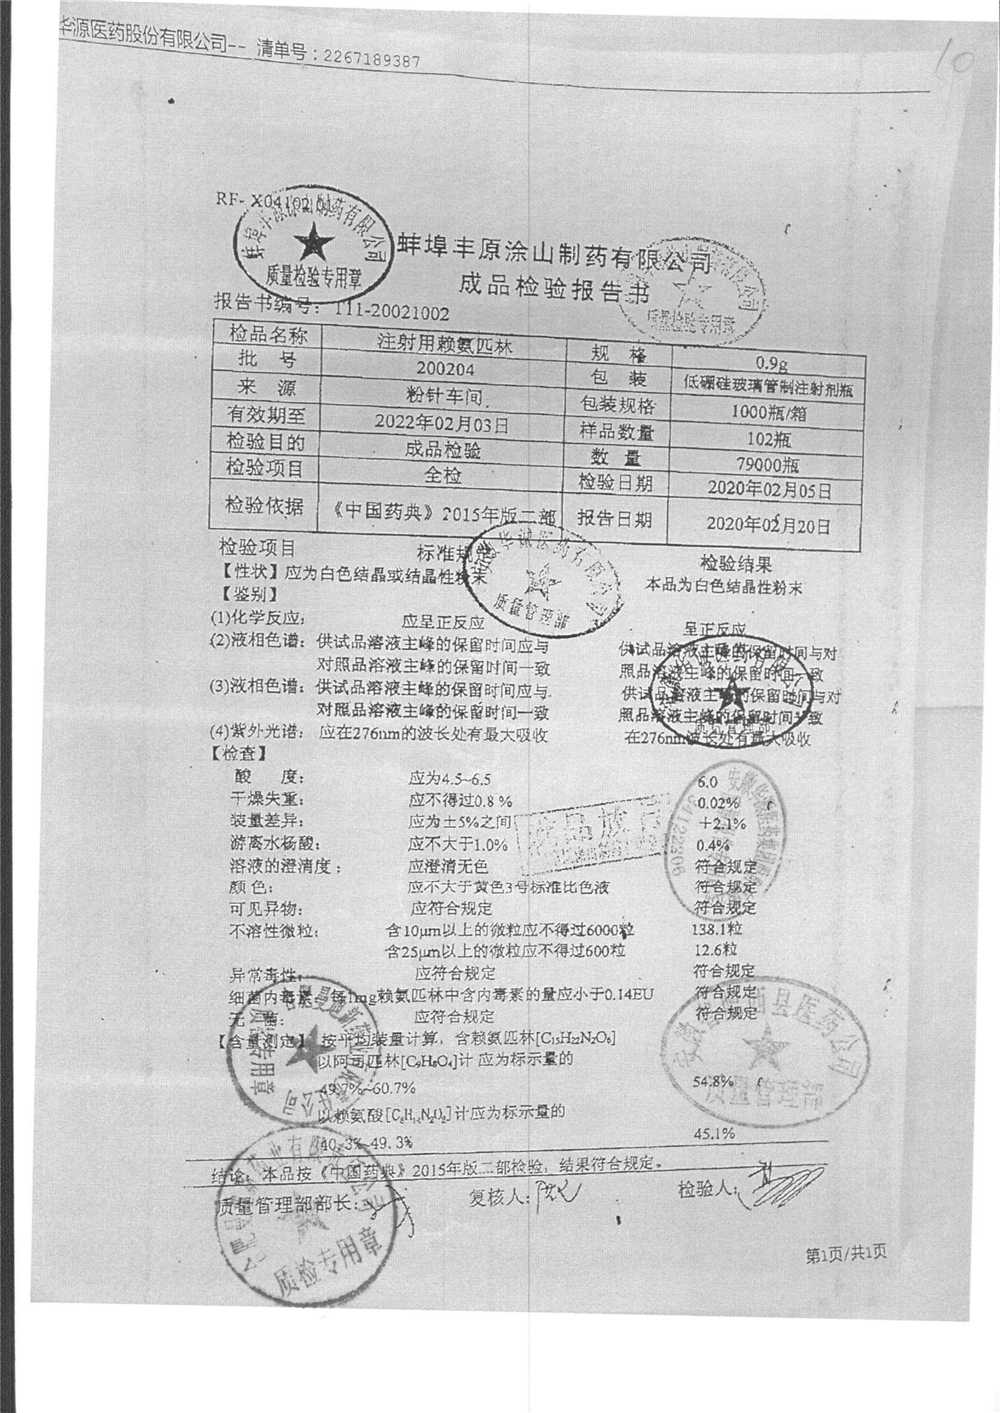 华源医药股份有限公司-- 清单号:2267189387
10
RF- X04102
蚌埠丰原涂山制药有限公司
成品检验报告书
质量检验专用章
质量检验专用章
报告书编号: 111-20021002
检品名称 注射用赖氨匹林 规 格 0.9g
批 号 200204 包 装 低硼硅玻璃管制注射剂瓶
来 源 粉针车间 包装规格 1000瓶/箱
有效期至 2022年02月03日 样品数量 102瓶
检验目的 成品检验 数 量 79000瓶
检验项目 全检 检验日期 2020年02月05日
检验依据 《中国药典》2015年版二部 报告日期 2020年02月20日
检验项目 标准规定 检验结果
【性状】应为白色结晶或结晶性粉末 本品为白色结晶性粉末
【鉴别】
(1)化学反应: 应呈正反应 呈正反应
(2)液相色谱: 供试品溶液主峰的保留时间应与 供试品溶液主峰的保留时间与对
对照品溶液主峰的保留时间一致 照品溶液主峰的保留时间一致
(3)液相色谱: 供试品溶液主峰的保留时间应与 供试品溶液主峰的保留时间与对
对照品溶液主峰的保留时间一致 照品溶液主峰的保留时间一致
(4)紫外光谱: 应在276nm的波长处有最大吸收 在276nm波长处有最大吸收
质量管理部
质量管理部
【检查】
酸 度: 应为4.5~6.5 6.0
干燥失重: 应不得过0.8% 0.02%
装量差异: 应为±5%之间 +2.1%
游离水杨酸: 应不大于1.0% 0.4%
溶液的澄清度: 应澄清无色 符合规定
颜 色: 应不大于黄色3号标准比色液 符合规定
可见异物: 应符合规定 符合规定
不溶性微粒: 含10μm以上的微粒应不得过6000粒 138.1粒
含25μm以上的微粒应不得过600粒 12.6粒
异常毒性: 应符合规定 符合规定
细菌内毒素: 每1mg赖氨匹林中含内毒素的量应小于0.14EU 符合规定
无 菌: 应符合规定 符合规定
【含量测定】 按平均装量计算，含赖氨匹林[C₁₅H₂₂N₂O₆]
以阿司匹林[C₉H₈O₄]计 应为标示量的
49.7%~60.7% 54.8%
以赖氨酸[C₆H₁₄N₂O₂]计应为标示量的
40.3%~49.3% 45.1%
质量管理部
结论: 本品按《中国药典》2015年版二部检验，结果符合规定。
质量管理部部长: 复核人: 检验人:
质检专用章
第1页/共1页